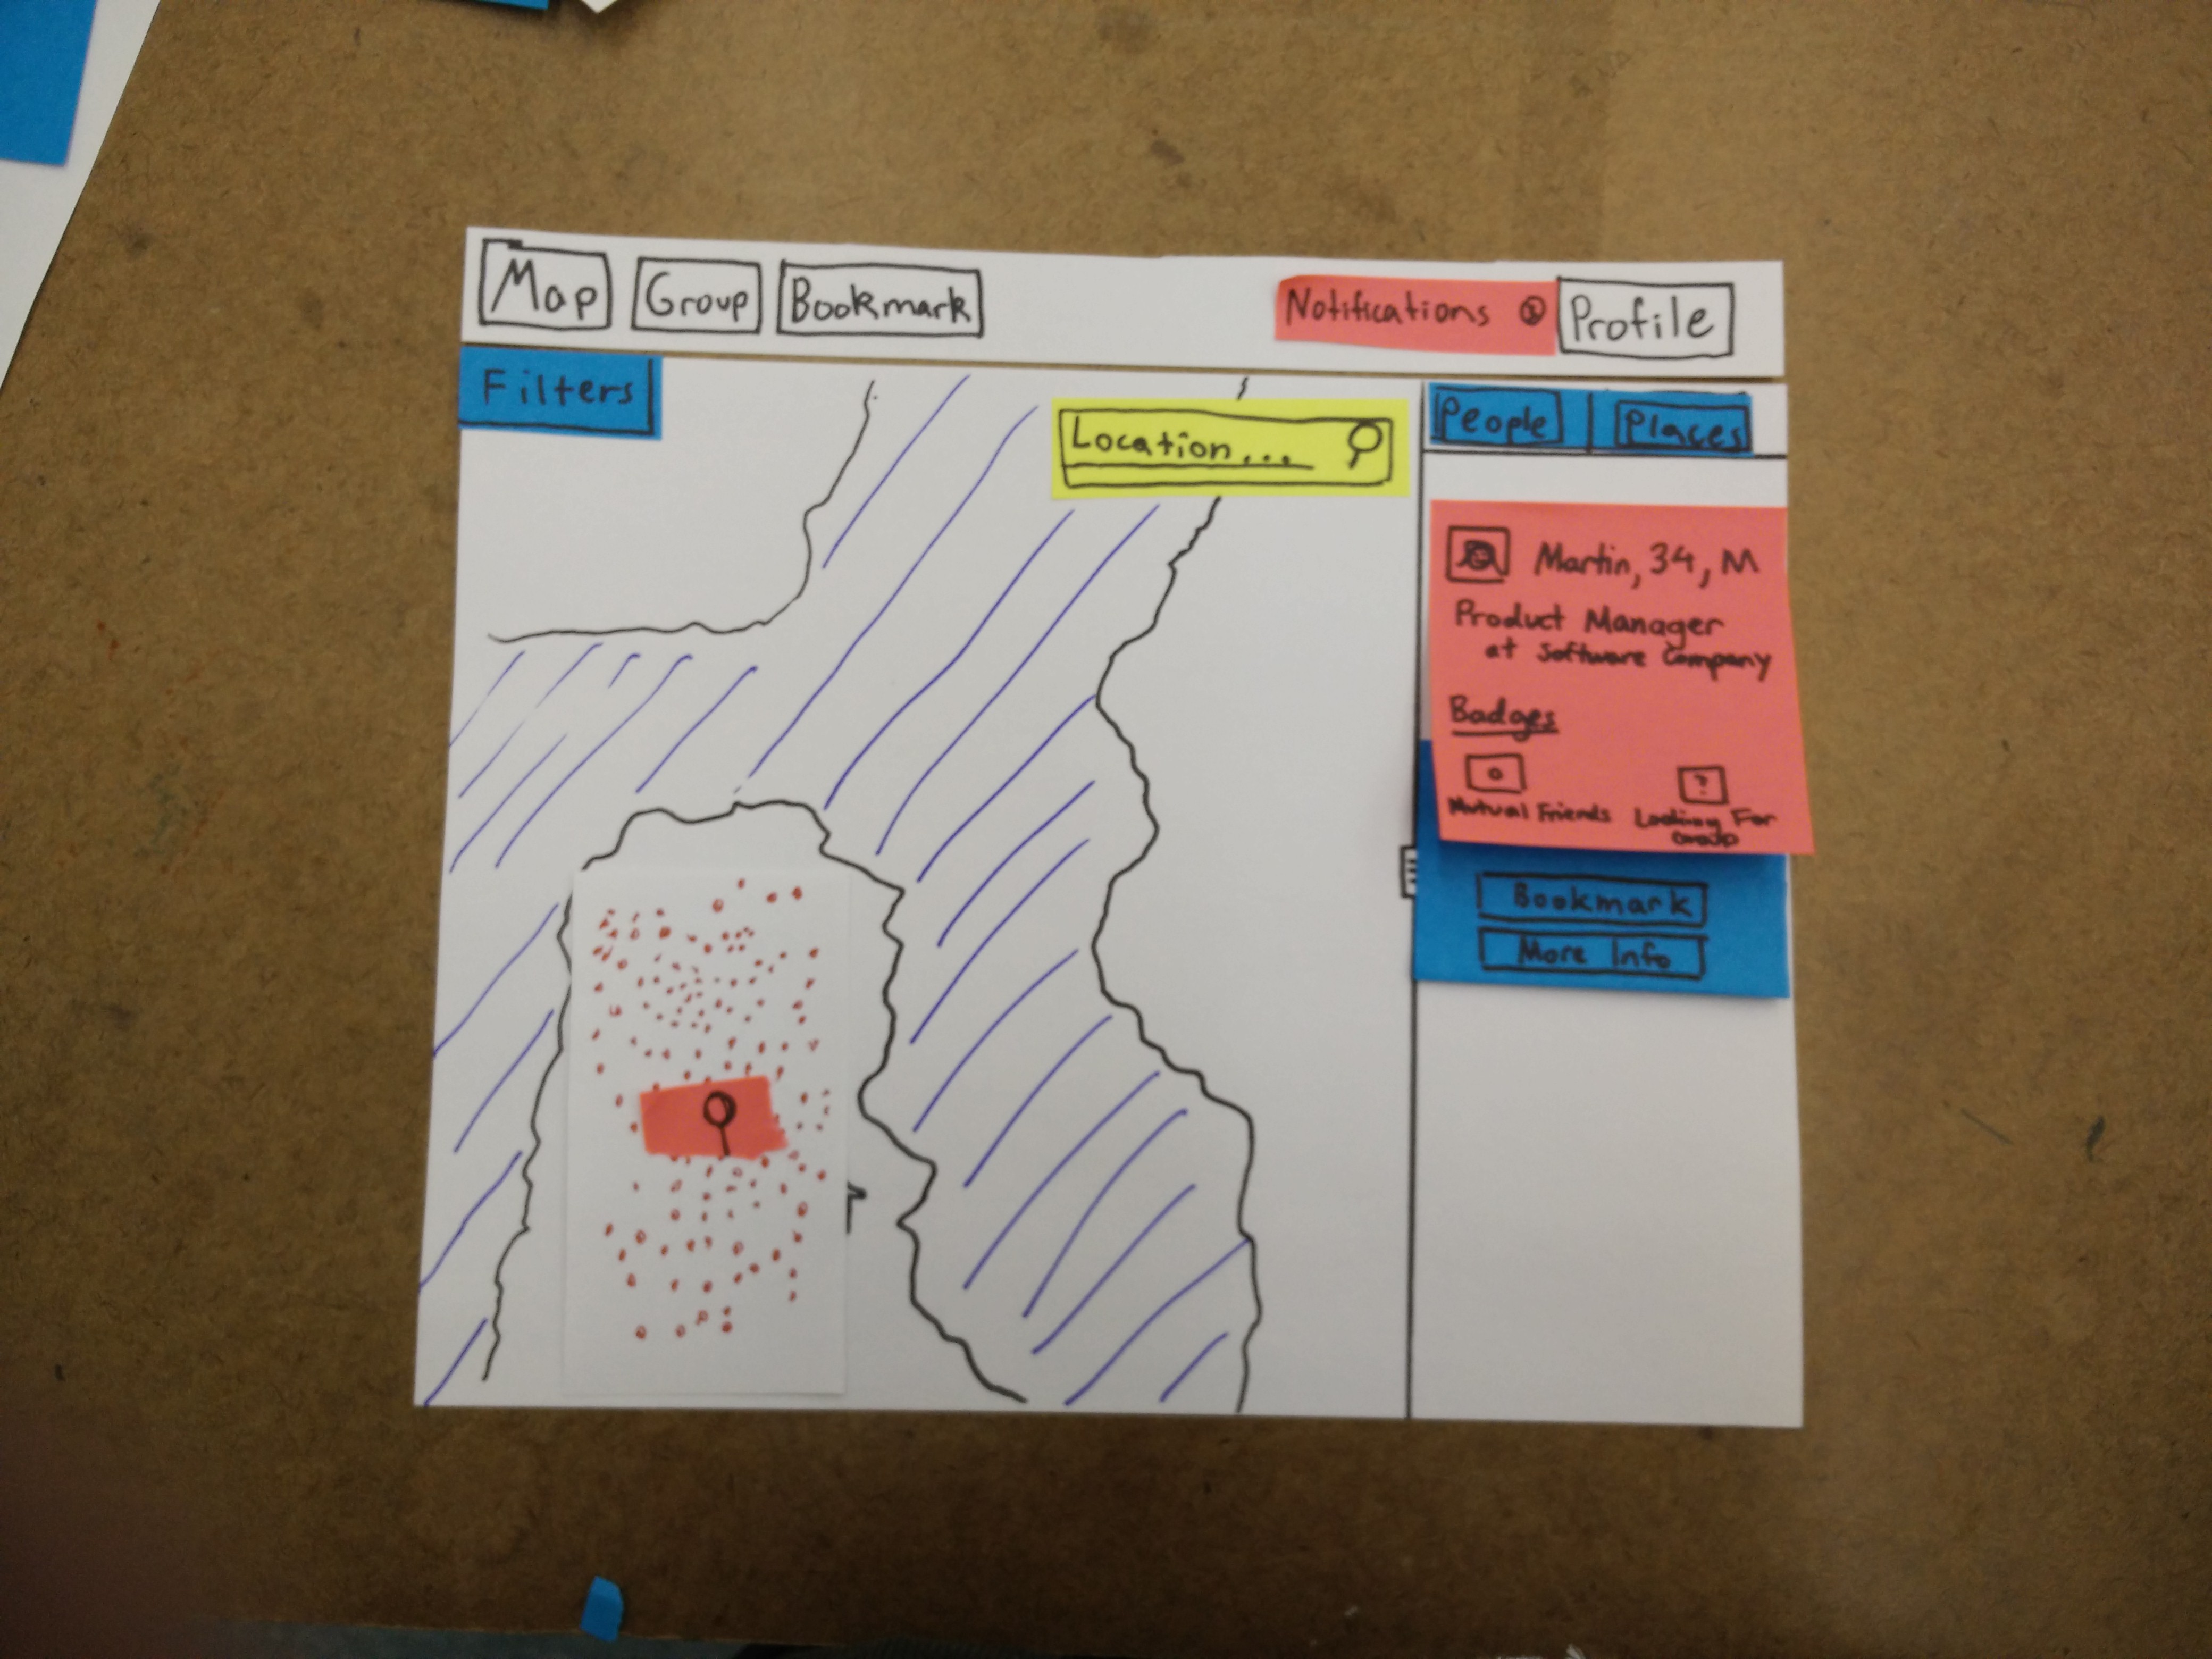 Map Group Bookmark Notifications Profile
Filters
Location...
People Places
Martin, 34, M
Product Manager
at Software Company
Badges
?
Mutual Friends
Looking For
Group
Bookmark
More Info